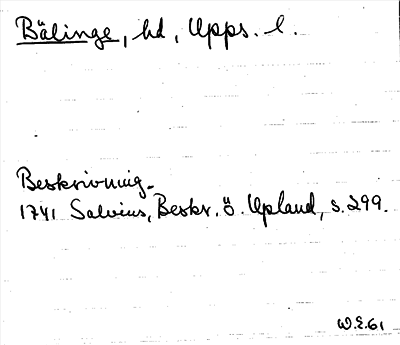 Bälinge, hd, Upps. l.
Beskrivning.
1741 Salvius, Beskr. ö. Upland, s. 299.
W.E.61